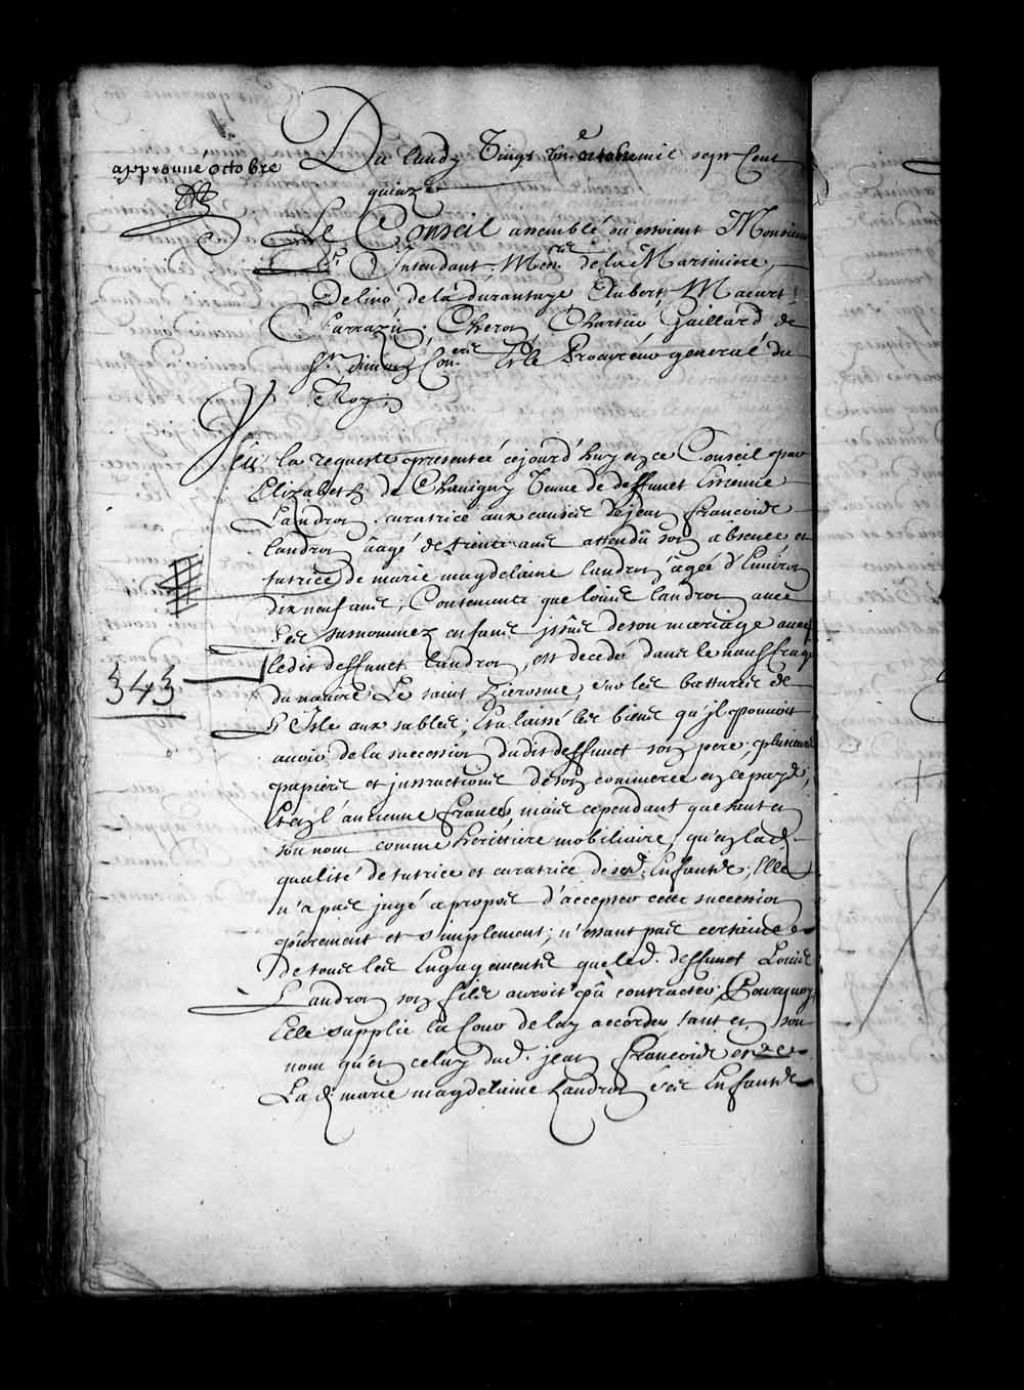 Du lundy Vingt un.e octobre mil sept Cent
approuué octobre
quinze
Le Conseil assemblé ou estoient Monsieur
L'Intendant. Mes.rs de la Martiniere,
Delino de la durantaye, Aubert, Macart
Sarrazin, Cheron, Chartier Gaillard de
Con.ers Et le Procureur general du
Roy,
Veu la requeste presentée cejourd'huy en ce Conseil par
Elizabeth de Chauigny Veuue de deffunct Estienne
Landron, curatrice aux causes de jean François
landron âagé de trente ans attendû son absence et
tutrice de marie magdelaine landron âgée d'Enuiron
dix neuf ans, Contenante que louis landron auec
ses surnommez enfans issûs de son mariage auec
ledit deffunct landron, est decedé dans le nauffrage
du nauire Le saint hierosme, sur les battures de
L'Isle aux sables; Et a laissé les biens qu'il pouuoit
auoir de la succession dudit deffunct son pere, plusieurs
papiers et instructions de son commerce en ce pays,
Et en l'ancienne france, mais cependant que tant en
son nom comme heritiere mobiliaire, qu'en lad.
qualité de tutrice et curatrice de sesd. Enfants, Elle
n'a pas jugé a propos d'accepter cette succession
purement et simplement; n'estant pas certaine
de tous les Engagements que led. deffunct Louis
Landron son fils auroit pû contracter, Pourquoy
Elle supplie la Cour de luy accorder, tant en son
nom qu'en celuy dud. jean François et de
La d. marie magdelaine Landron ses Enfants
343